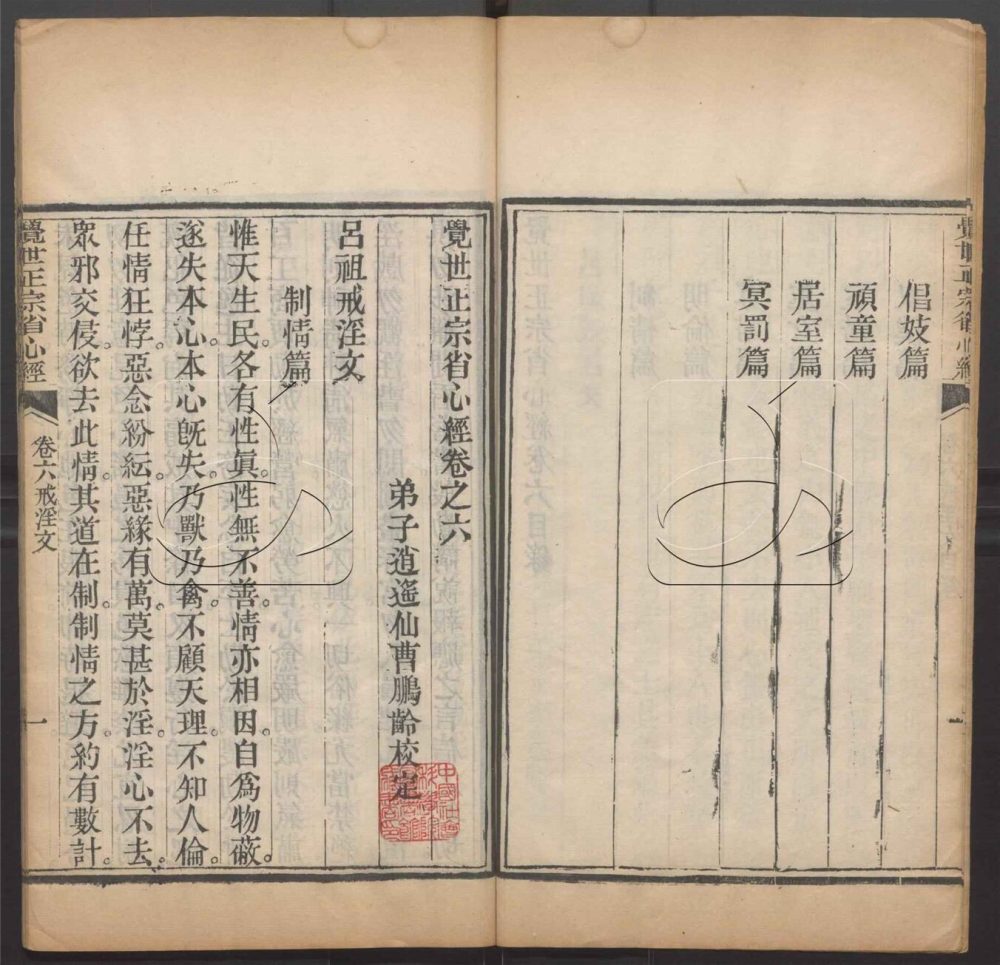 覺世正宗省心經
倡妓篇
頑童篇
居室篇
冥罰篇
覺世正宗省心經卷之六
弟子逍遙仙曹鵬齡校定
呂祖戒淫文
制情篇
惟天生民。各有性眞。性無不善。情亦相因。自爲物蔽。
遂失本心。本心旣失。乃獸乃禽。不顧天理。不知人倫。
任情狂悖。惡念紛紜。惡緣有萬。莫甚於淫。淫心不去。
眾邪交侵。欲去此情。其道在制。制情之方。約有數計。
覺世正宗省心經
卷六戒淫文
一